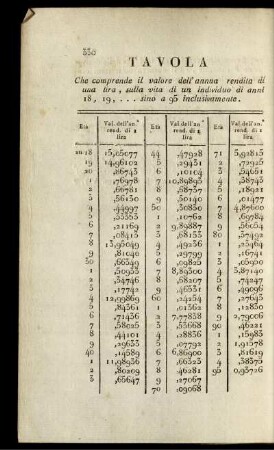 TAVOLA
Che comprende il valore dell'annua rendita di
una lira, sulla vita di un individuo di anni
18, 19, ... sino a 95 inclusivamente.
Età Val. dell'an.ª rend. di 1 lira Età Val. dell'an.ª rend. di 1 lira Età Val. dell'an.ª rend. di 1 lira
18 15,05077 44 ,47928 71 5,92815
19 14,96102 5 ,29451 2
20 ,86743 6 ,10104 3 ,54651
1 ,76978 7 10,89895 4 ,38743
2 ,66781 8 ,68757 5 ,18921
3 ,56130 9 ,50140 6 ,01477
4 ,44997 50 ,30830 7 4,87600
5 ,33383 1 ,10762 8 ,69784
6 ,21169 2 9,89887 9 ,56054
7 ,08413 3 ,68133 80 ,37492
8 13,95049 4 ,49236 1
9 ,81040 5 ,29799 2 ,16741
30 ,66349 6 ,09825 3
1 ,50933 7 8,89300 4 3,87140
2 ,34746 8 ,68207 5 ,74247
3 ,17742 9 6 ,49096
4 12,99869 60 ,24254 7
5 ,84361 1 ,01362 8 ,12830
6 ,71436 2 7,77838 9 2,79006
7 ,58026 3 ,53668 90 ,46221
8 ,44101 4 ,28836 1
9 ,29633 5 ,07792 2 1,91578
40 ,14589 6 6,86900 3 ,81619
1 11,98936 7 ,66323 4 ,38373
2 ,80209 8 ,46281 95 0,93726
3 ,65647 9 ,27067
70 ,09068